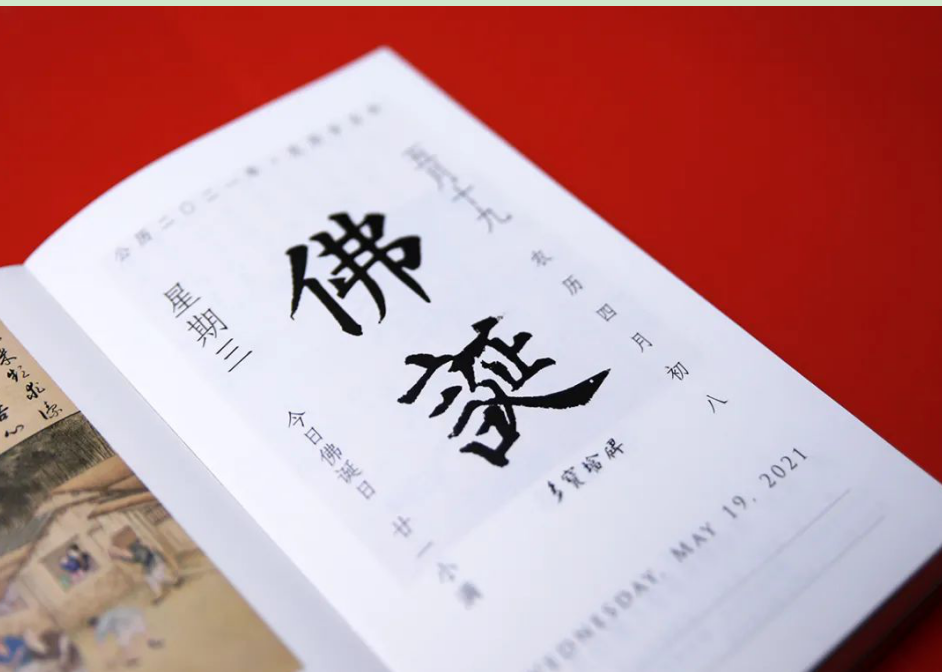 公历二〇二一年
五月十九
农历四月初八
佛誕
多寶塔碑
星期三
今日佛誕日 廿一小满
WEDNESDAY, MAY 19, 2021